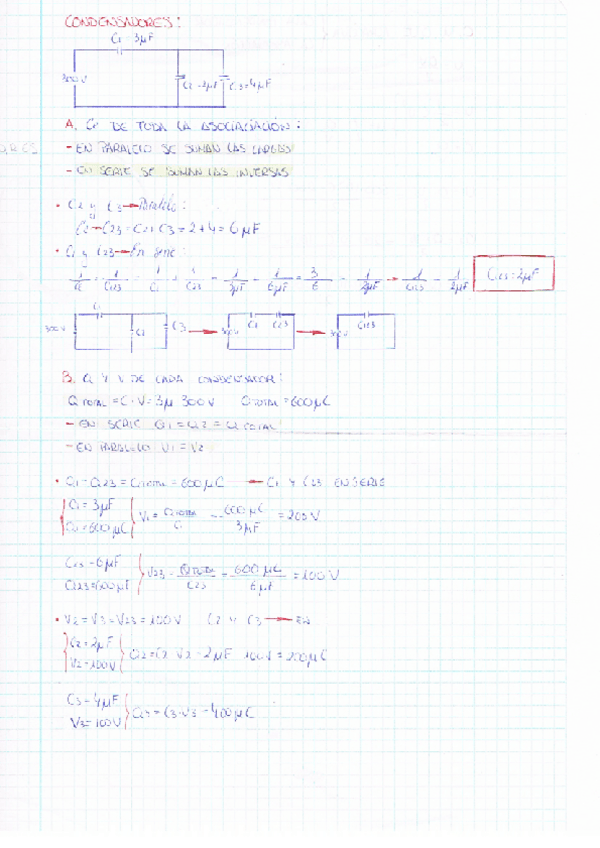 CONDENSADORES:
C1 3µF
300V
C2=2µF C3=4µF
A. CT DE TODA LA ASOCIACIÓN:
- EN PARALELO SE SUMAN LAS CARGAS
- EN SERIE SE SUMAN LAS INVERSAS
• C2 y C3 → Paralelo:
C23 = C2+C3 = 2+4 = 6µF
• C1 y C23 → En serie:
1/C123 = 1/C1 + 1/C23 = 1/3µF 1/6µF = 3/6 = 1/2µF → 1/C123 = 1/2µF C123=2µF
300V C1 C2 C3 → 300V C1 C23 → 300V C123
B. Q Y V DE CADA CONDENSADOR:
Q TOTAL = C·V = 300V QTOTAL = 600µC
- EN SERIE Q1 = Q2 = Q TOTAL
- EN PARALELO V1 = V2
• Q1=Q23=QTOTAL=600µC ← C1 Y C23 EN SERIE
C1=3µF
Q1=600µC V1= QTOTAL/C1 = 600µC/3µF = 200V
C23=6µF
Q23=600µF V23= QTOTAL/C23 = 600µC/6µF = 100V
• V2=V3=V23=100V C2 Y C3 →
C2=2µF
V2=100V Q2=C2·V2=2µF 100V=200µC
C3=4µF
V3=100V Q3=C3·V3=400µC